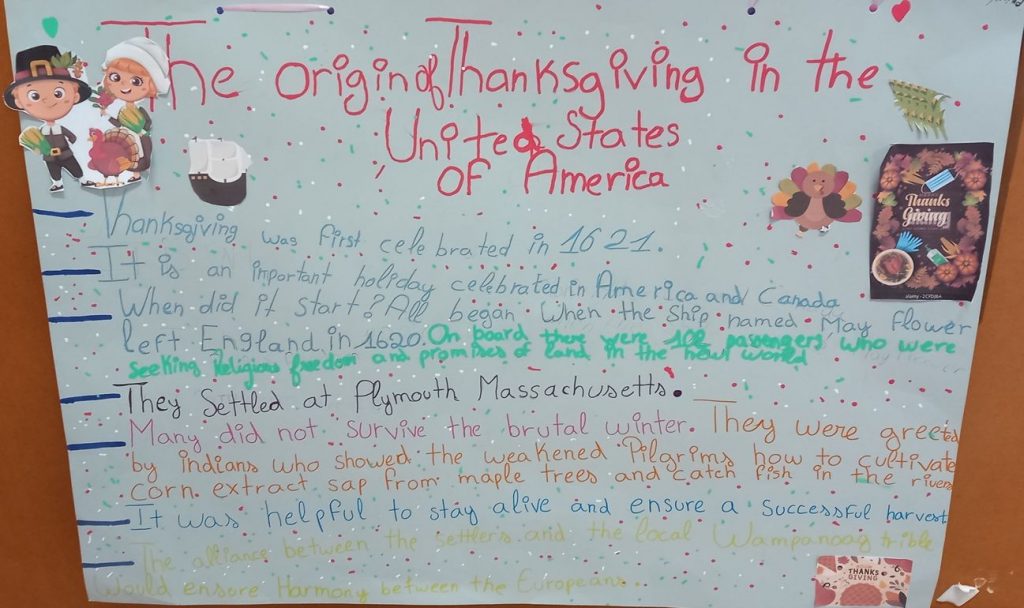 The origin of Thanksgiving in the
United States
OF America
Thanksgiving was first celebrated in 1621.
It is an important holiday celebrated in America and Canada
When did it start? All began when the ship named May flower
left England in 1620. On board there were 102 passengers who were
seeking Religious freedom and promises of land in the new world
They Settled at Plymouth Massachusetts.
Many did not survive the brutal winter. They were greeted
by indians who showed the weakened Pilgrims how to cultivate
corn. extract sap from maple trees and catch fish in the rivers
It was helpful to stay alive and ensure a successful harvest
The alliance between the settlers and the local Wampanoag trible
Would ensure Harmony between the Europeans..
Thanks
Giving
alamy - 2CFDJ6A
THANKS
GIVING